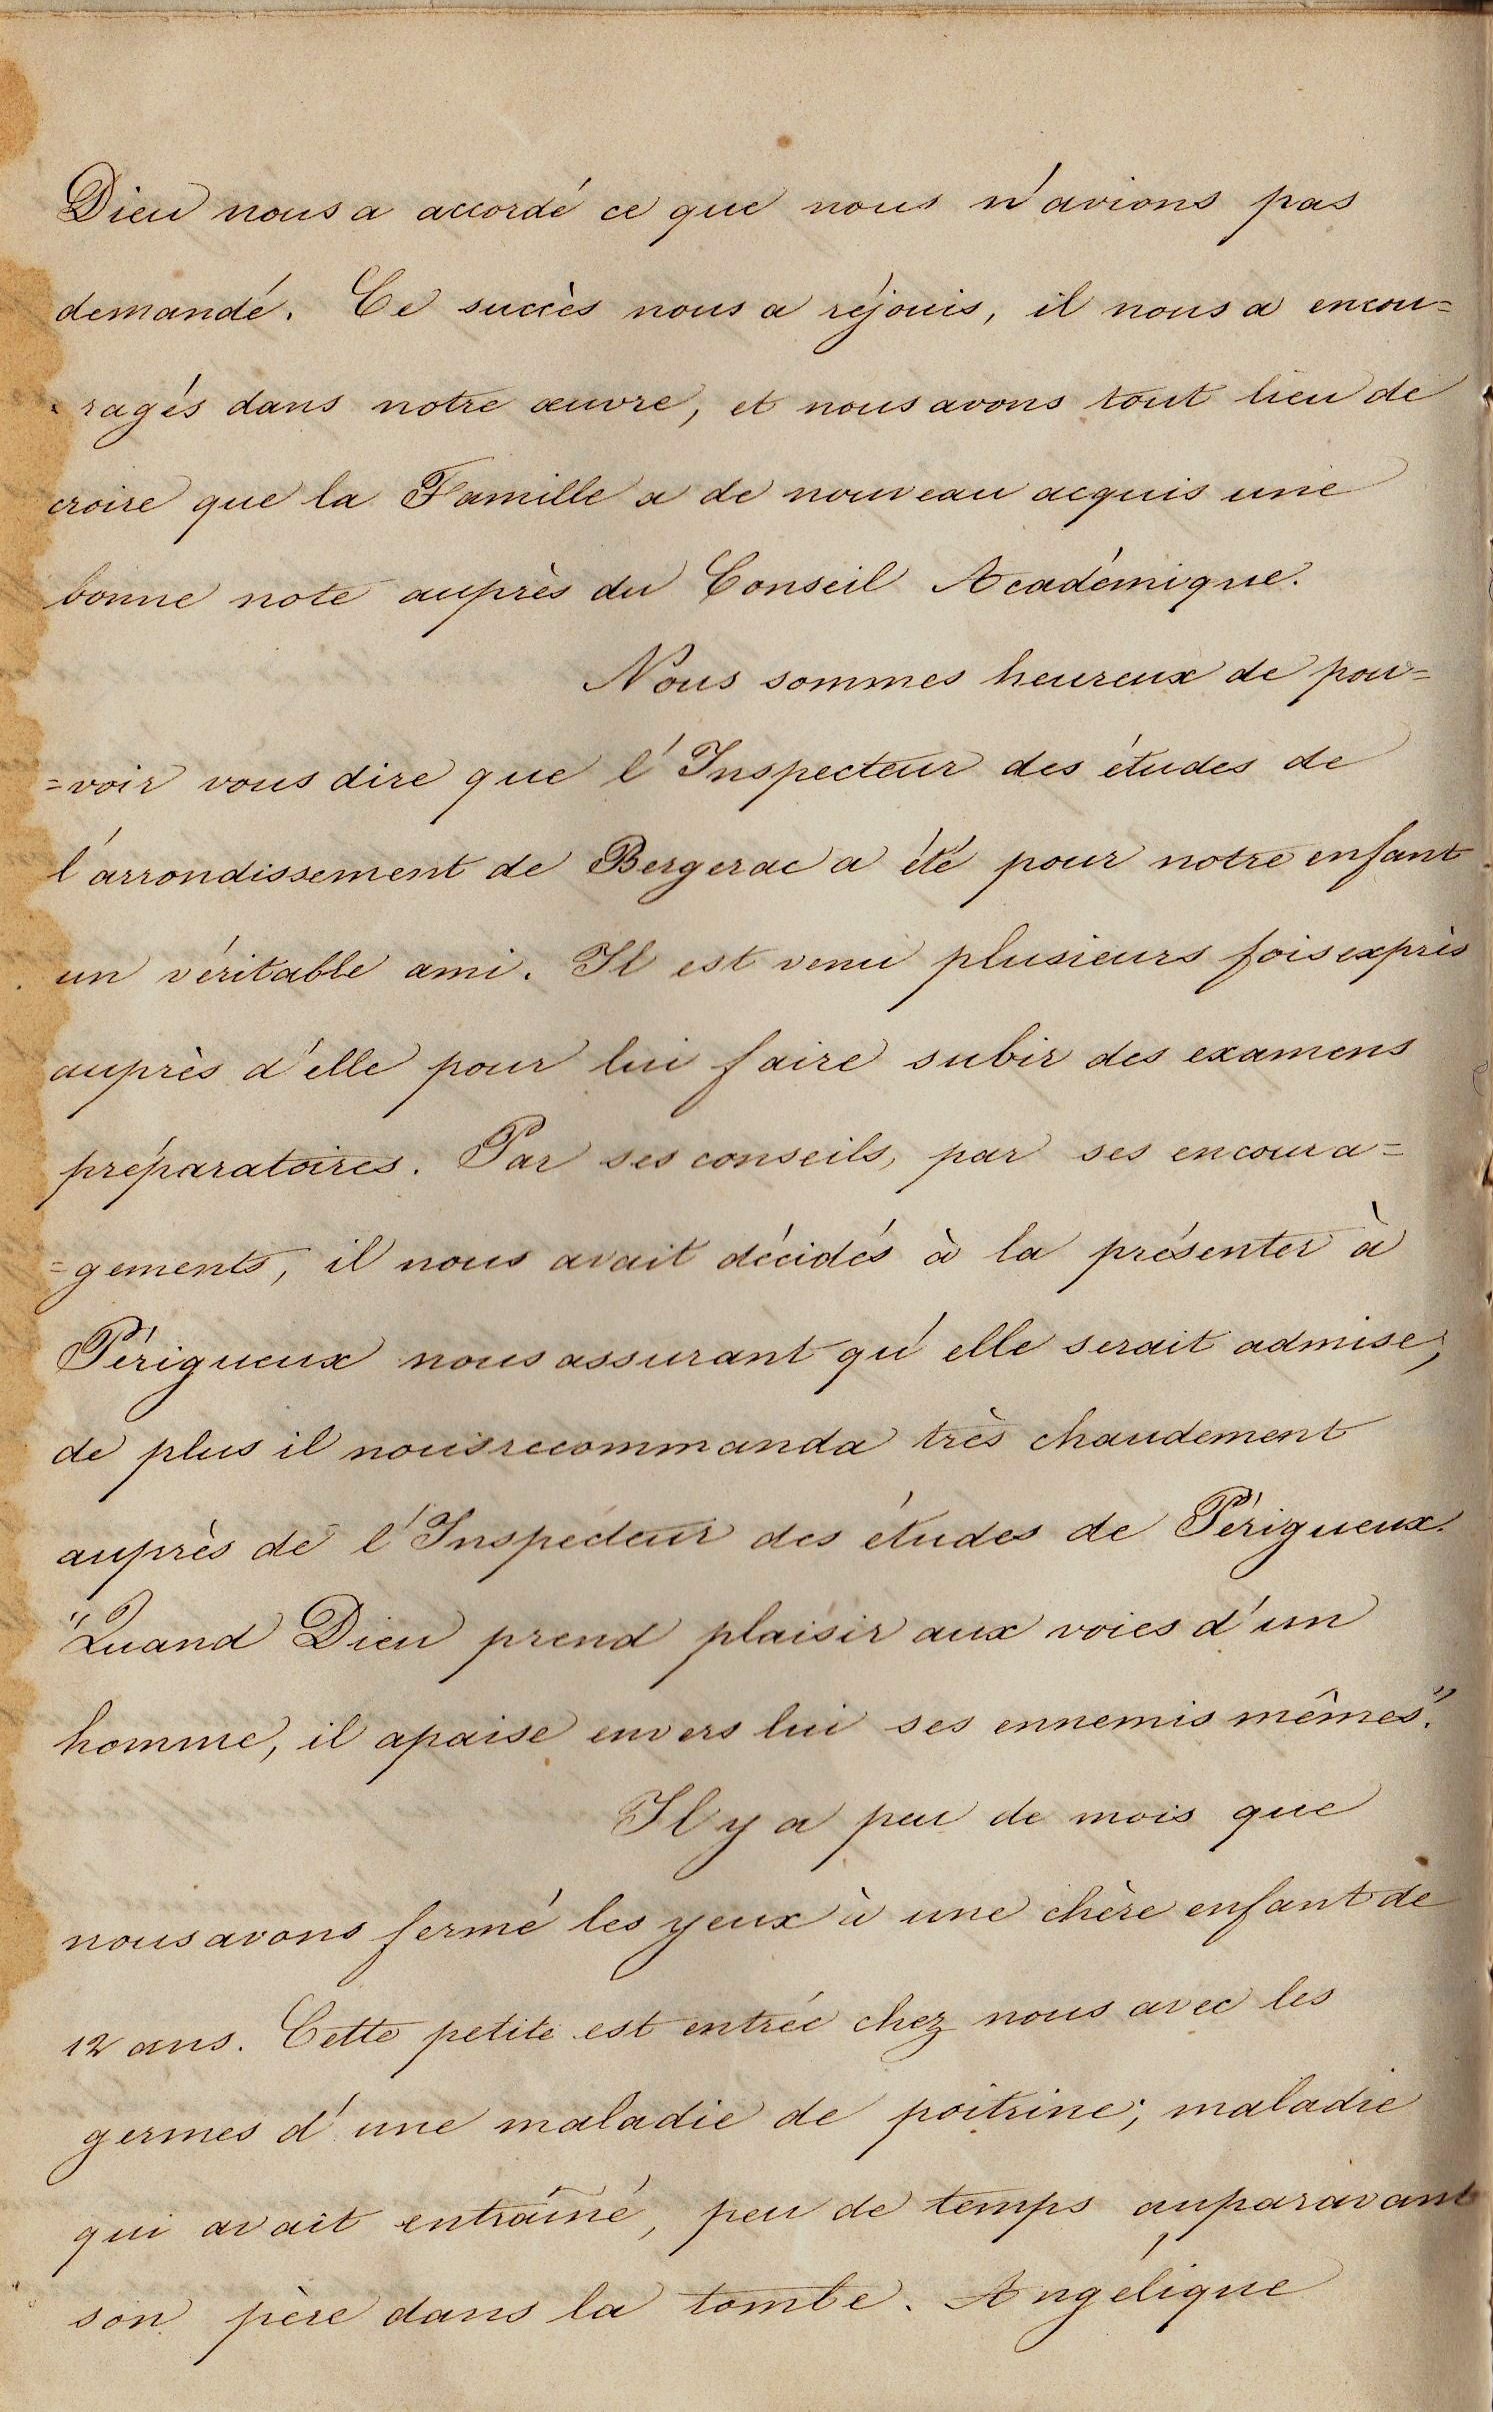 Dieu nous a accordé ce que nous n'avions pas
demandé. Ce succès nous a réjouis, il nous a encou=
=ragés dans notre œuvre, et nous avons tout lieu de
croire que la Famille a de nouveau acquis une
bonne note auprès du Conseil Académique.
Nous sommes heureux de pou=
=voir vous dire que l'Inspecteur des études de
l'arrondissement de Bergerac a été pour notre enfant
un véritable ami. Il est venu plusieurs fois exprès
auprès d'elle pour lui faire subir des examens
préparatoires. Par ses conseils, par ses encoura=
=gements, il nous avait décidés à la présenter à
Périgueux nous assurant qu'elle serait admise;
de plus il nous recommanda très chaudement
auprès de l'Inspecteur des études de Périgueux.
"Quand Dieu prend plaisir aux voies d'un
homme, il apaise envers lui ses ennemis mêmes".
Il y a peu de mois que
nous avons fermé les yeux à une chère enfant de
12 ans. Cette petite est entrée chez nous avec les
germes d'une maladie de poitrine; maladie
qui avait entraîné, peu de temps auparavant
son père dans la tombe. Angélique